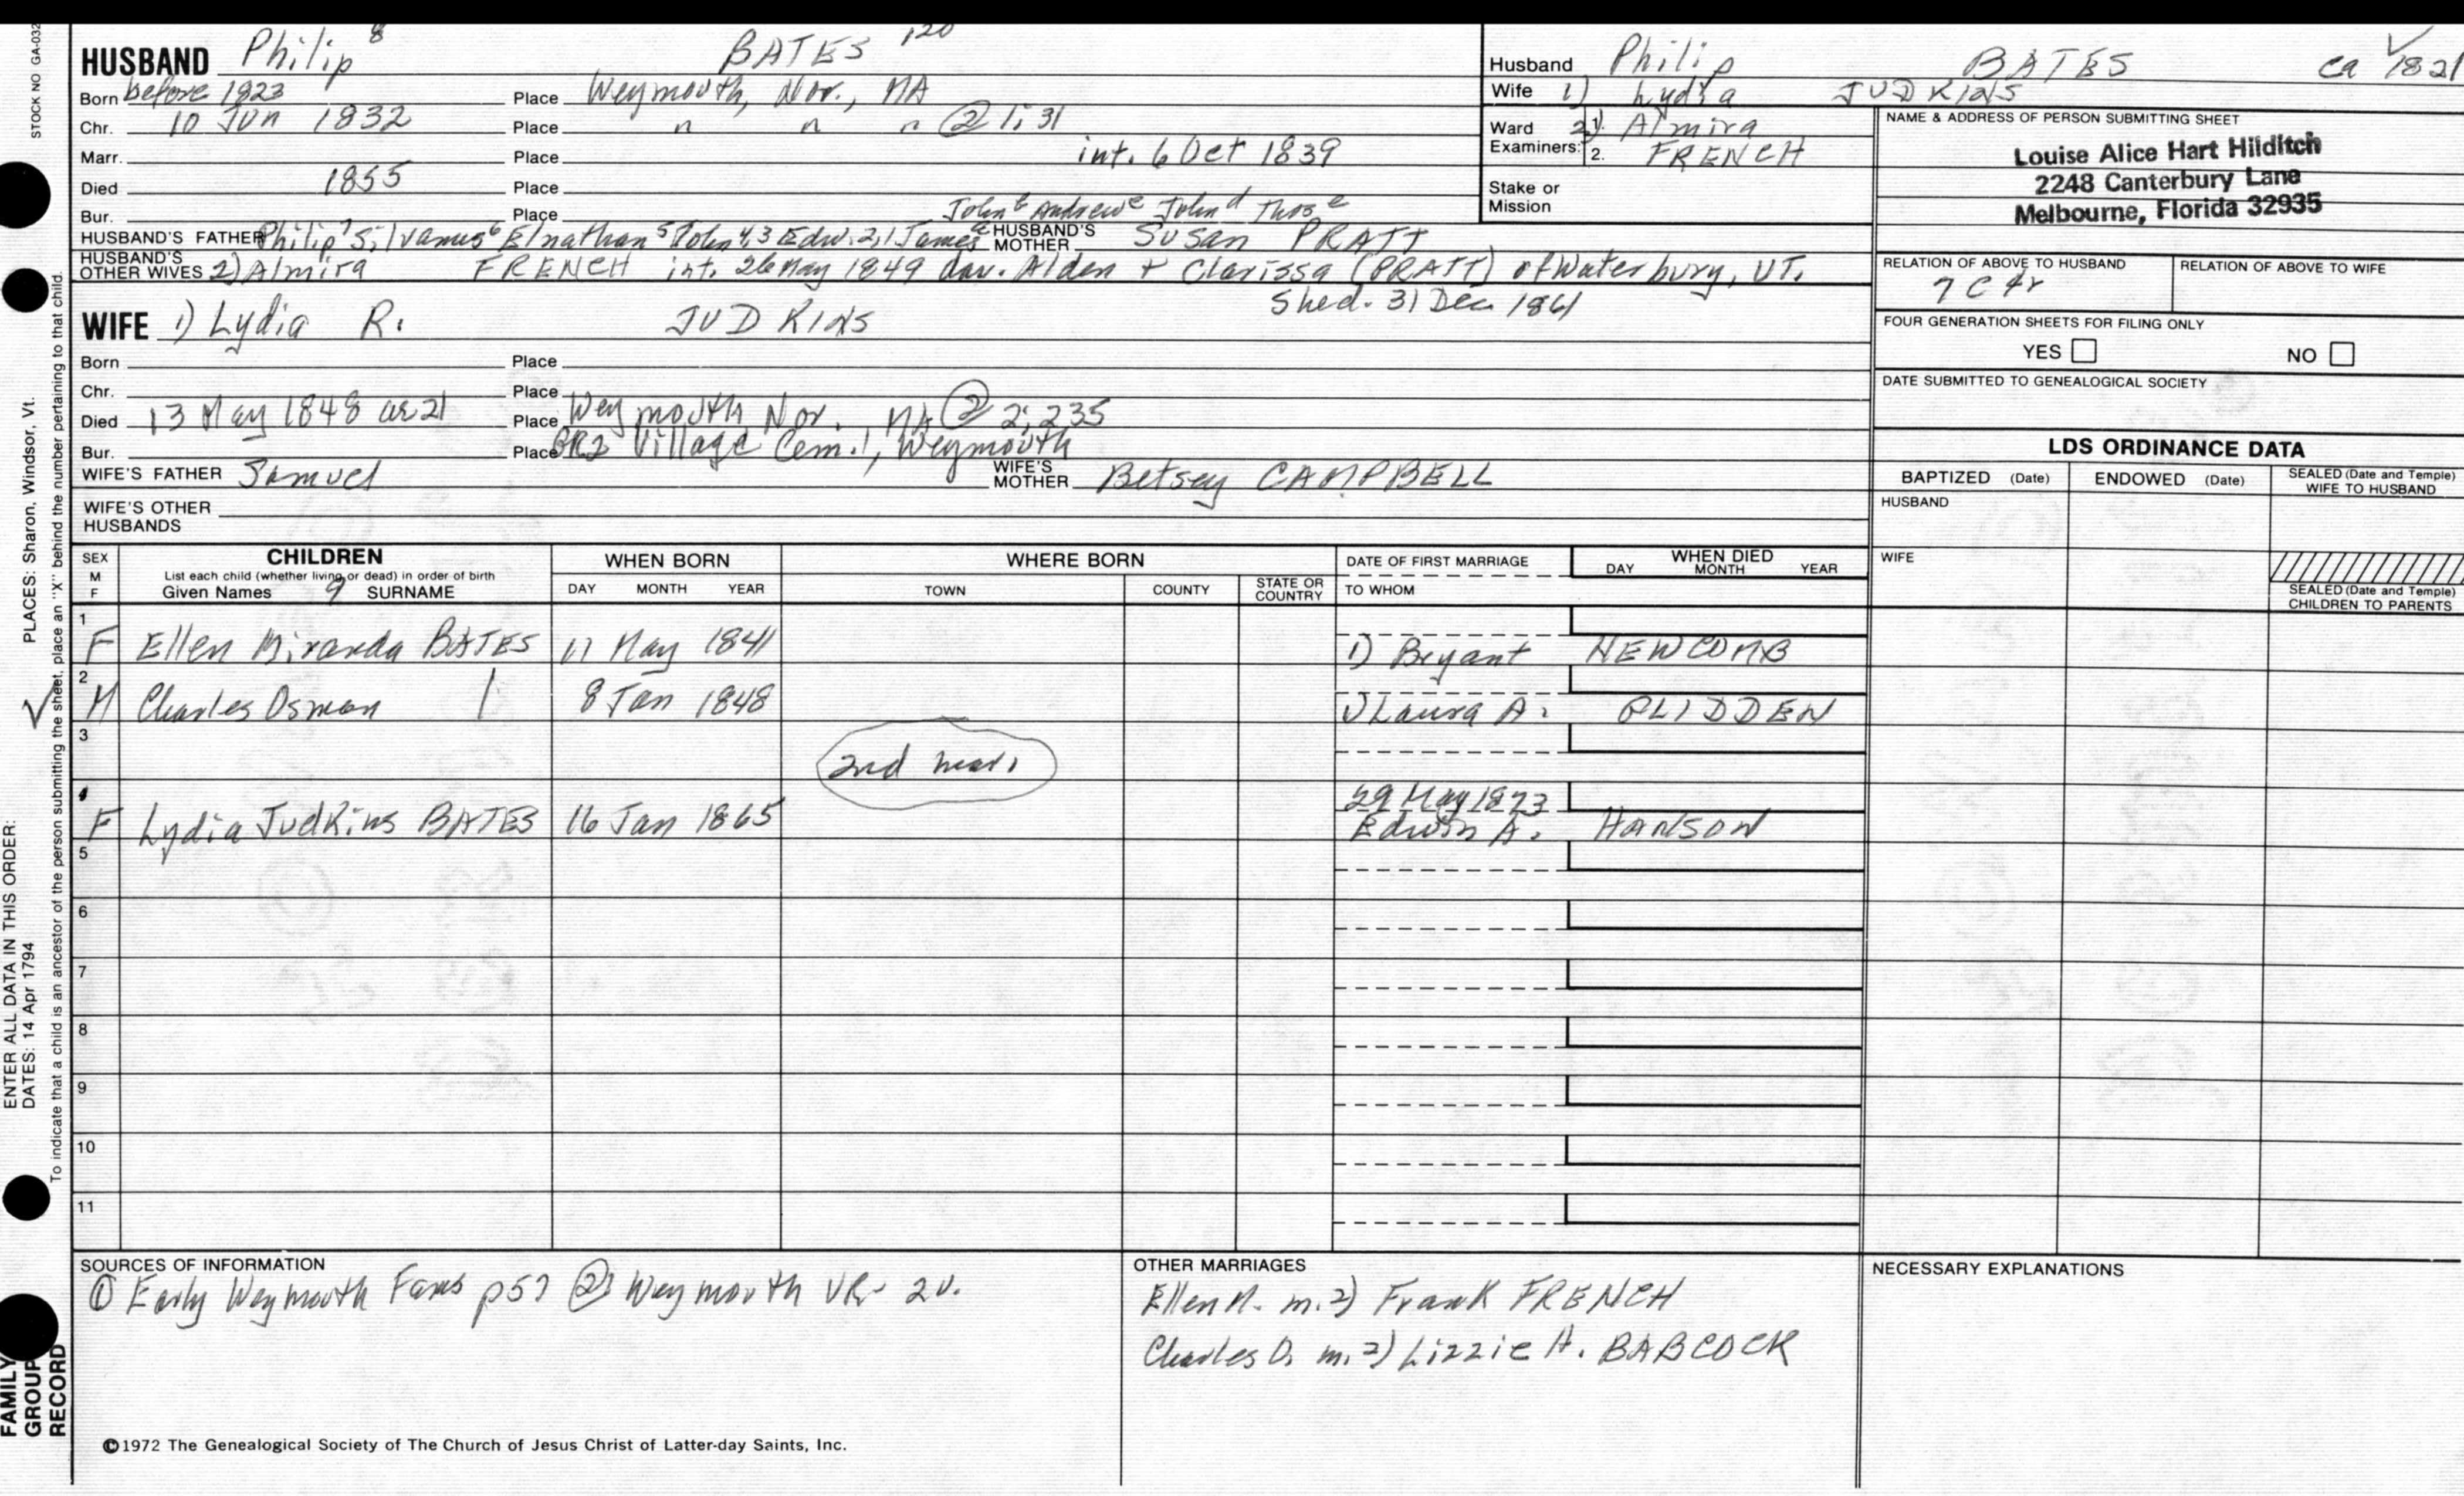 STOCK NO GA-032
HUSBAND Philip 8 BATES 120
Born before 1823 Place Weymouth, Nor., MA
Chr. 10 Jun 1832 Place " " " @ 1; 31
Marr. Place int. 6 Oct 1839
Died 1855 Place
Bur. Place John Andrew John Thos
HUSBAND'S FATHER Philip 7 Silvanus 6 Elnathan 5 John 4,3 Edw. 2,1 James HUSBAND'S MOTHER Susan PRATT
HUSBAND'S OTHER WIVES 2) Almira FRENCH int. 26 May 1849 dau. Alden + Clarissa (PRATT) of Waterbury, VT.
She d. 31 Dec 1861
WIFE 1) Lydia R. JUDKINS
Born Place
Chr. Place
Died 13 May 1848 ae 21 Place Weymouth Nor., MA @ 2; 235
Bur. Place GR2 Village Cem., Weymouth
WIFE'S FATHER Samuel WIFE'S MOTHER Betsey CAMPBELL
WIFE'S OTHER HUSBANDS
Husband Philip BATES ca 1821
Wife 1) Lydia JUDKINS
Ward 2) 1. Almira
Examiners: 2. FRENCH
Stake or Mission
NAME & ADDRESS OF PERSON SUBMITTING SHEET
Louise Alice Hart Hilditch
2248 Canterbury Lane
Melbourne, Florida 32935
RELATION OF ABOVE TO HUSBAND RELATION OF ABOVE TO WIFE
7 C 4r
FOUR GENERATION SHEETS FOR FILING ONLY
YES NO
DATE SUBMITTED TO GENEALOGICAL SOCIETY
LDS ORDINANCE DATA
BAPTIZED (Date) ENDOWED (Date) SEALED (Date and Temple) WIFE TO HUSBAND
HUSBAND
WIFE
SEALED (Date and Temple) CHILDREN TO PARENTS
SEX M F
CHILDREN
List each child (whether living or dead) in order of birth
Given Names 9 SURNAME
WHEN BORN
DAY MONTH YEAR
WHERE BORN
TOWN COUNTY STATE OR COUNTRY
DATE OF FIRST MARRIAGE
TO WHOM
WHEN DIED
DAY MONTH YEAR
1
F Ellen Miranda BATES 11 May 1841 1) Bryant NEWCOMB
2
M Charles Osman 8 Jan 1848 1) Laura A.
3
2nd marr.
4 29 May 1873
F Lydia Judkins BATES 16 Jan 1865 Edwin A. HANSON
5
6
7
8
9
10
11
SOURCES OF INFORMATION
① Early Weymouth Fams p57 @ Weymouth VR- 2v.
OTHER MARRIAGES
Ellen M. m. 2) Frank FRENCH
Charles O. m. 2) Lizzie H. BABCOCK
NECESSARY EXPLANATIONS
©1972 The Genealogical Society of The Church of Jesus Christ of Latter-day Saints, Inc.
ENTER ALL DATA IN THIS ORDER:
DATES: 14 Apr 1794 PLACES: Sharon, Windsor, Vt.
To indicate that a child is an ancestor of the person submitting the sheet, place an "X" behind the number pertaining to that child.
FAMILY
GROUP
RECORD